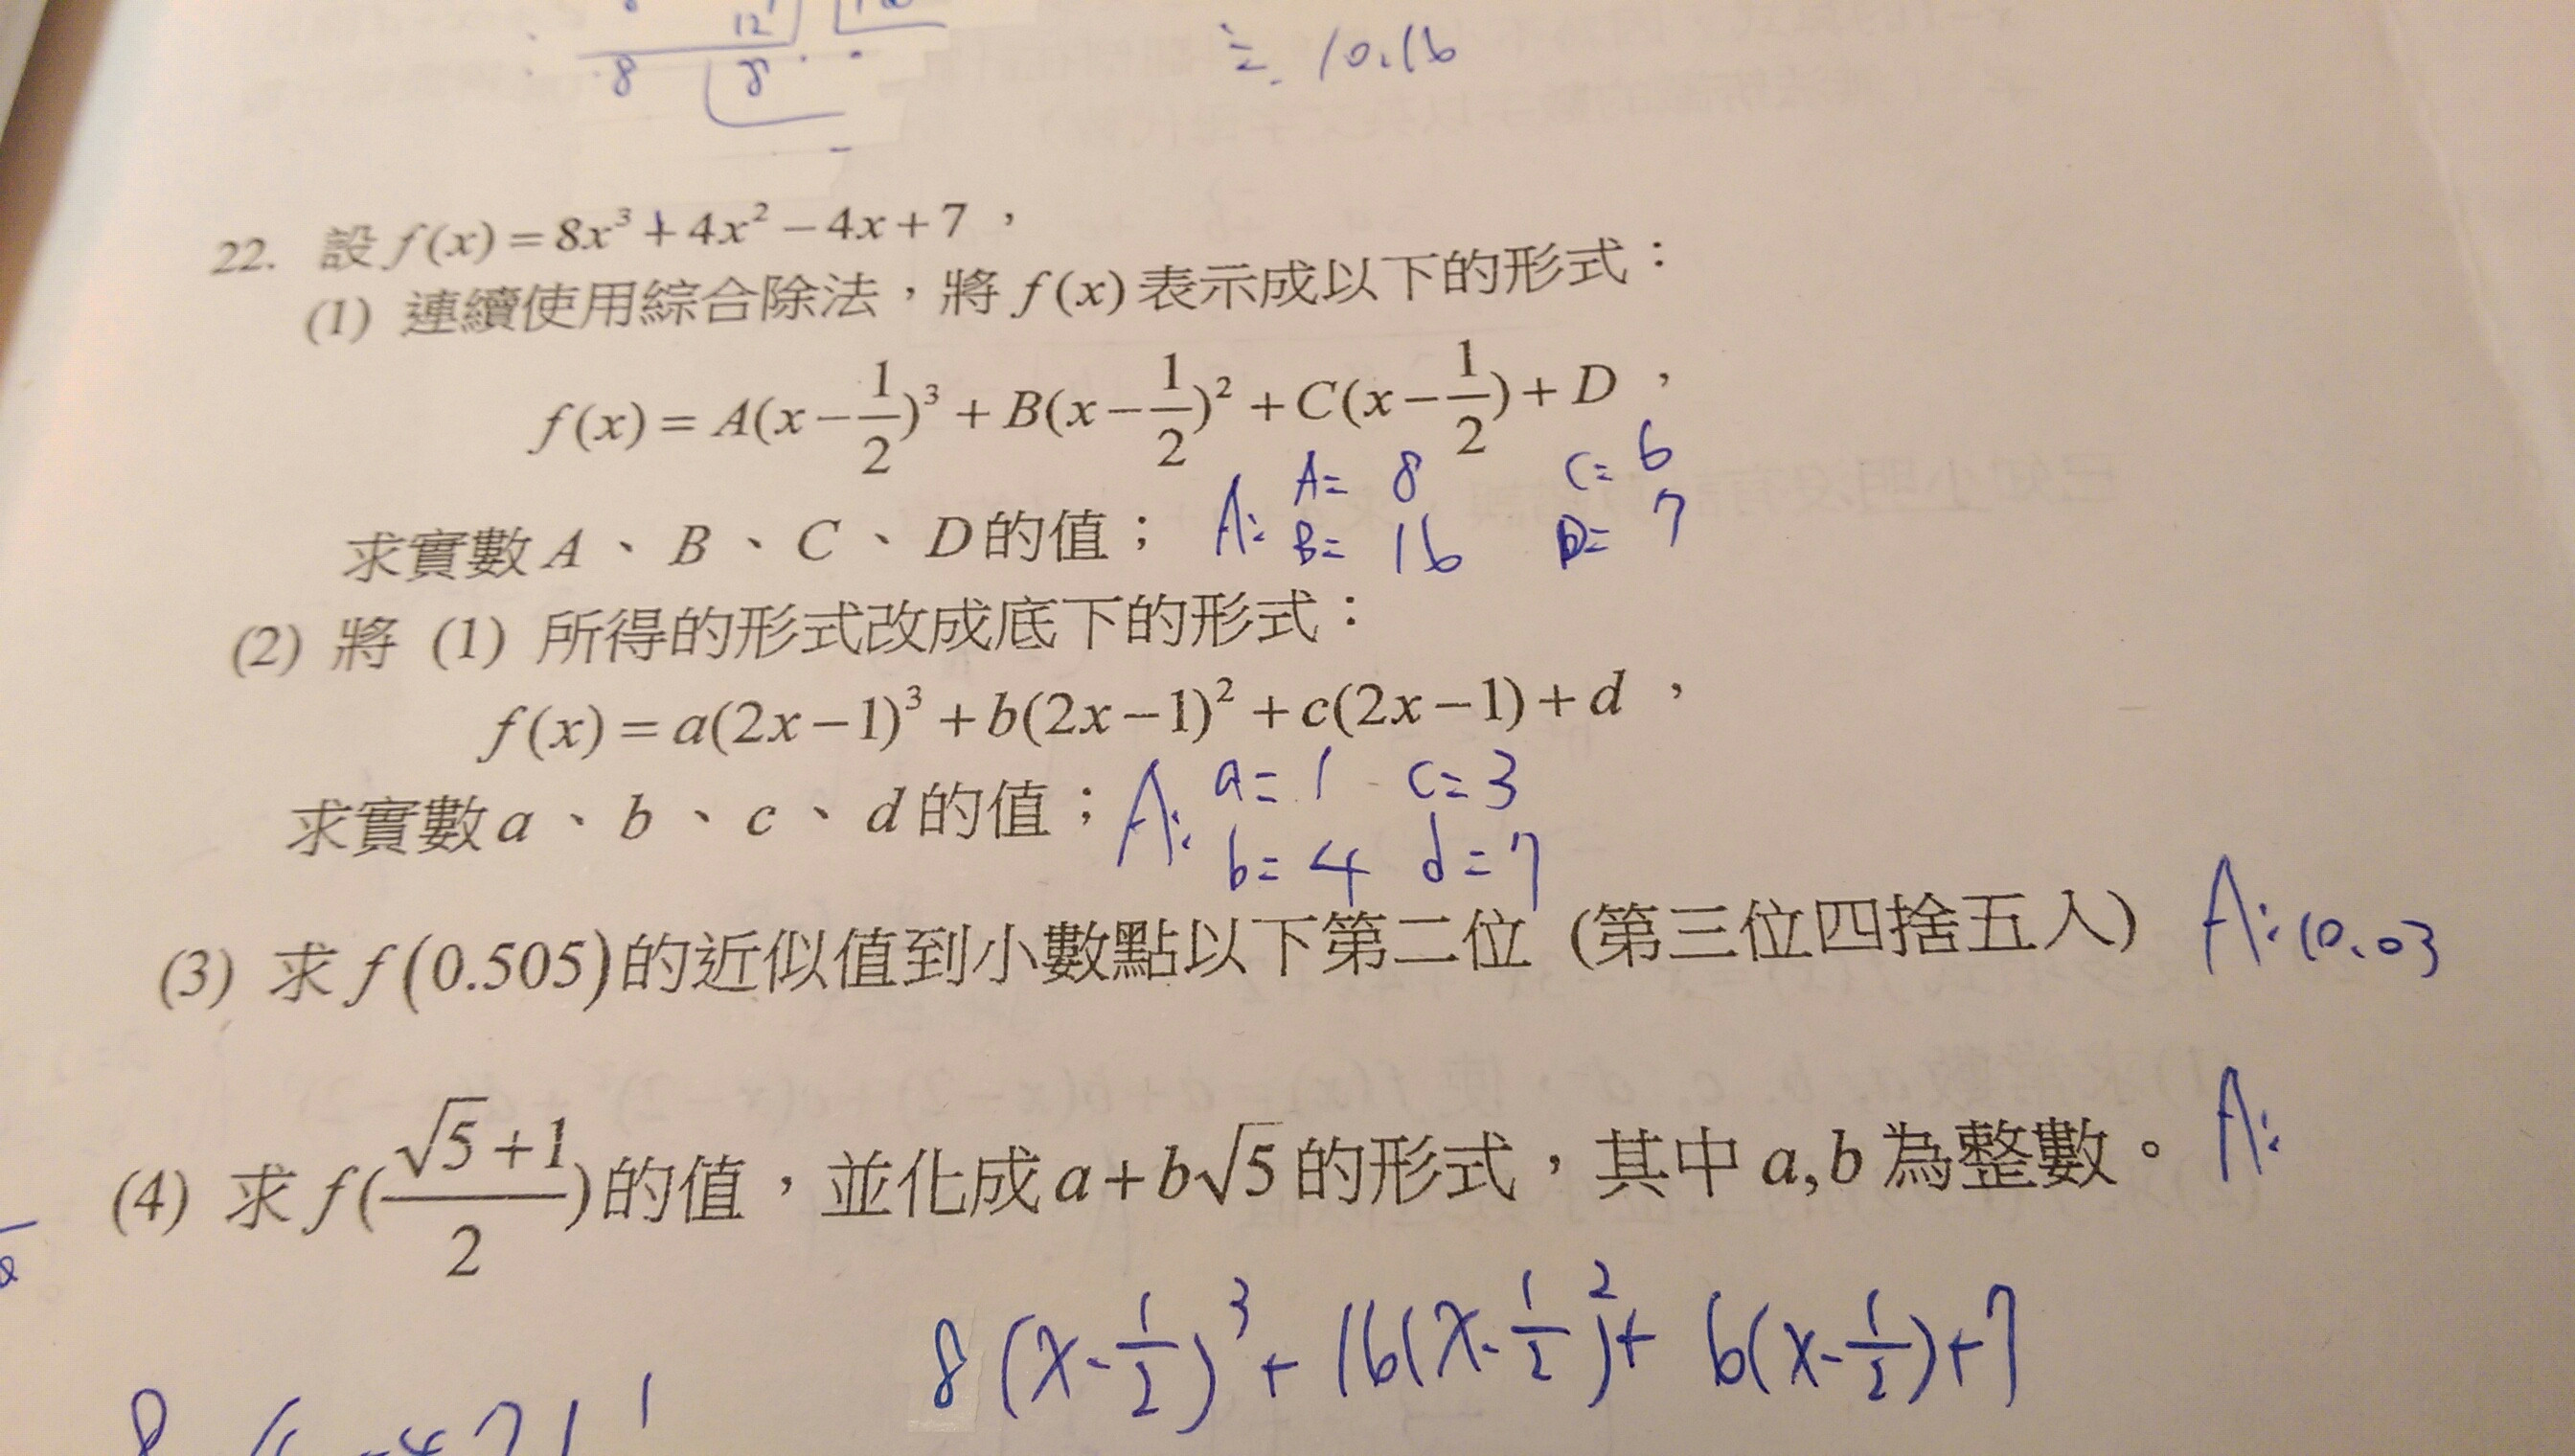 12
8 8
≒ 10.16
22. 設 f(x) = 8x³ + 4x² − 4x + 7 ,
(1) 連續使用綜合除法,將 f(x) 表示成以下的形式:
f(x) = A(x − 1/2)³ + B(x − 1/2)² + C(x − 1/2) + D ,
A= 8 C= 6
求實數 A 、 B 、 C 、 D 的值; A: B= 16 D= 7
(2) 將 (1) 所得的形式改成底下的形式:
f(x) = a(2x − 1)³ + b(2x − 1)² + c(2x − 1) + d ,
a= 1 c= 3
求實數 a 、 b 、 c 、 d 的值; A: b= 4 d = 7
(3) 求 f(0.505) 的近似值到小數點以下第二位 (第三位四捨五入) A: 10.03
(4) 求 f((√5 + 1)/2) 的值,並化成 a + b√5 的形式,其中 a, b 為整數。 A:
8(x - 1/2)³ + 16(x - 1/2)² + 6(x - 1/2) + 7